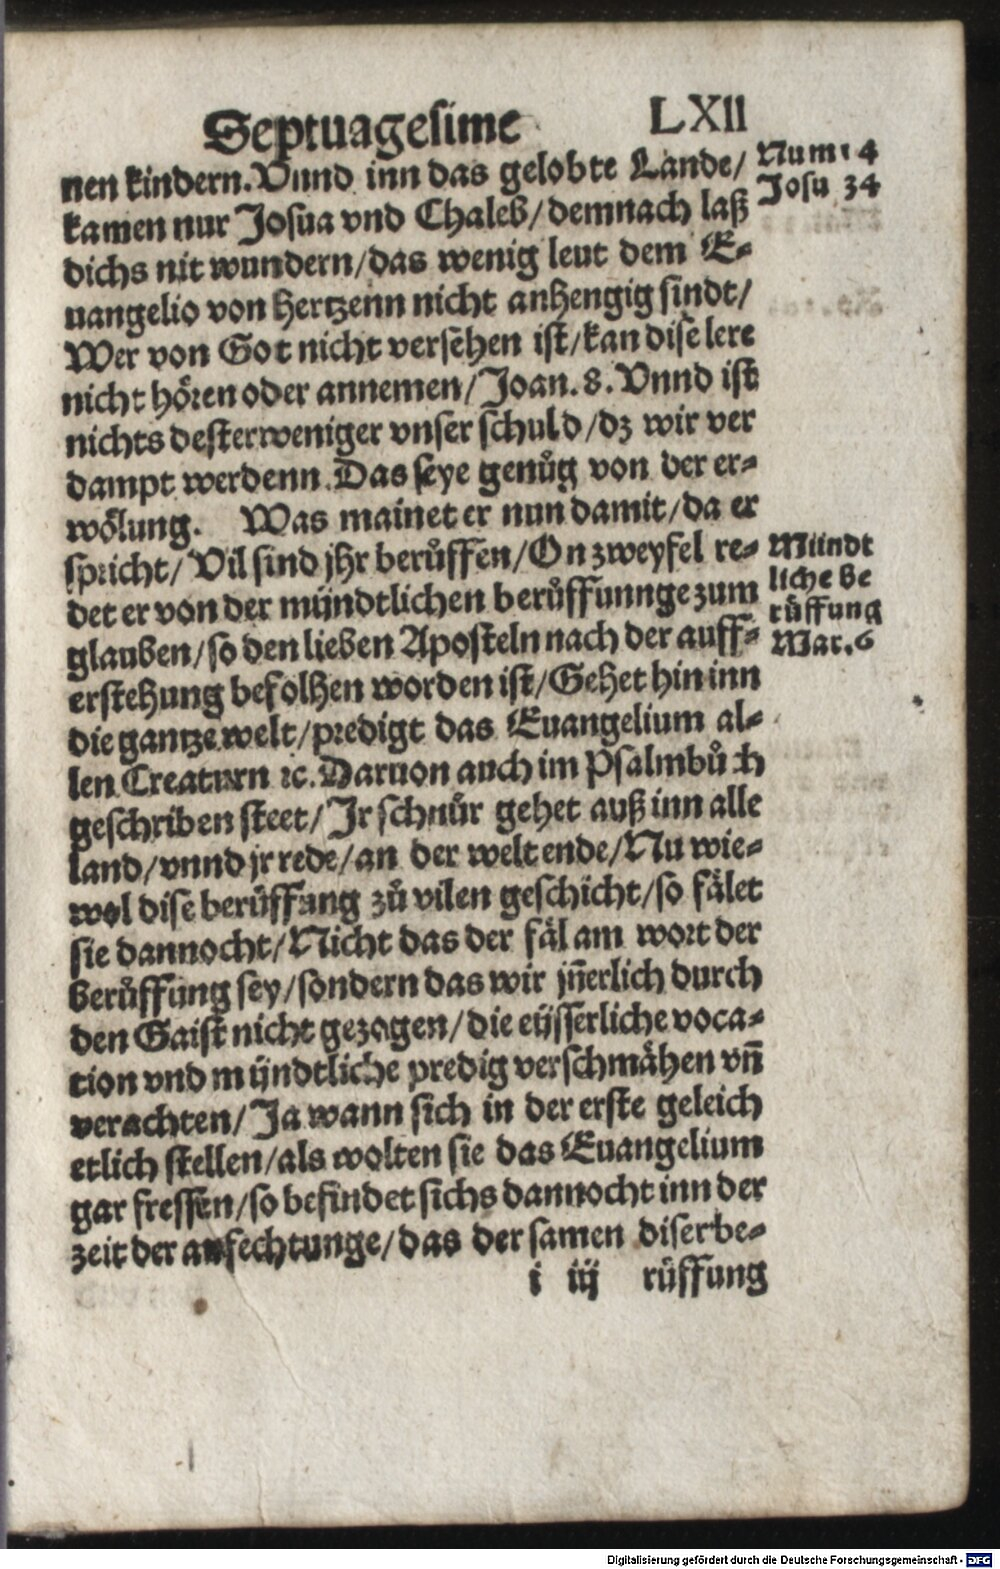 Septuagesime LXII
nen kindern. Vnnd inn das gelobte Lande/
kamen nur Josua vnd Chaleb/ demnach laß
dichs nit wundern/ das wenig leut dem E⸗
uangelio von hertzenn nicht anhengig sindt/
Wer von Got nicht versehen ist/ kan dise lere
nicht hören oder annemen/ Joan. 8. Vnnd ist
nichts desterweniger vnser schuld/ dz wir ver
dampt werdenn. Das seye genůg von der er⸗
wölung. Was mainet er nun damit/ da er
spricht/ Vil sind jhr berůffen/ On zweyfel re⸗
det er von der mündtlichen berůffunnge zum
glauben/ so den lieben Aposteln nach der auff⸗
erstehung befolhen worden ist/ Gehet hin inn
die gantze welt/ predigt das Euangelium al⸗
len Creaturn ꝛc. Daruon auch im Psalmbůch
geschriben steet/ Jr schnůr gehet auß inn alle
land/ vnnd jr rede/ an der welt ende/ Nu wie⸗
wol dise berůffung zů vilen geschicht/ so fälet
sie dannocht/ Nicht das der fäl am wort der
berůffung sey/ sondern das wir jn̄erlich durch
den Gaist nicht gezogen/ die eüsserliche voca⸗
tion vnd mündtliche predig verschmähen vn̄
verachten/ Ja wann sich in der erste geleich
etlich stellen/ als wolten sie das Euangelium
gar fressen/ so befindet sichs dannocht inn der
zeit der anfechtunge/ das der samen diser be⸗
i iij rüffung
Num. 14
Josu 34
Mündt
liche be
rüffung
Mar. 6
Digitalisierung gefördert durch die Deutsche Forschungsgemeinschaft - DFG